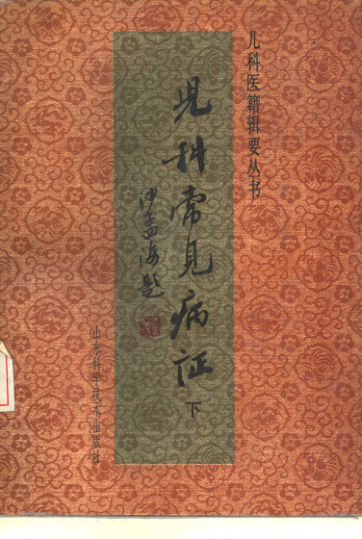 儿科医籍辑要丛书
児科常见病证
下
沙孟海题
山东科学技术出版社